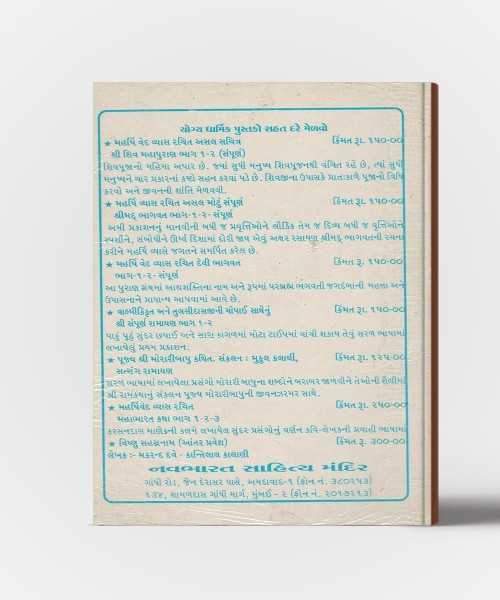 યોગ્ય ધાર્મિક પુસ્તકો રાહત દરે મેળવો
★ મહર્ષિ વેદ વ્યાસ રચિત અસલ સચિત્ર કિંમત રૂા. ૧૫૦-૦૦
શ્રી શિવ મહાપુરાણ ભાગ ૧-૨ (સંપૂર્ણ)
શિવપૂજાનો મહિમા અપાર છે. જ્યાં સુધી મનુષ્ય શિવપૂજનથી વંચિત રહે છે, ત્યાં સુધી
મનુષ્યને ચાર પ્રકારનાં કષ્ટો સહન કરવાં પડે છે. શિવજીના ઉપાસકે પ્રાતઃકાળે પૂજાનો વિધિ
કરવો અને જીવનની શાંતિ મેળવવી.
★ મહર્ષિ વ્યાસ રચિત અસલ મોટું સંપૂર્ણ કિંમત રૂા. ૧૫૦-૦૦
શ્રીમદ્ ભાગવત ભાગ-૧-૨- સંપૂર્ણ
અમી પ્રકાશનનું માનવીની બધી જ પ્રવૃત્તિઓને લૌકિક તેમ જ દિવ્ય બધી જ વૃત્તિઓને
સ્પર્શીને, સંબોધીને ઊર્ધ્વ દિશામાં દોરી જાય એવું અક્ષર રસાયણ શ્રીમદ્ ભાગવતની રચના
કરીને મહર્ષિ વ્યાસે જગતને સમર્પિત કરેલ છે.
★ મહર્ષિ વેદ વ્યાસ રચિત દેવી ભાગવત કિંમત રૂા. ૧૫૦-૦૦
ભાગ-૧-૨- સંપૂર્ણ
આ પુરાણ ગ્રંથમાં આદ્યશક્તિના નામ અને રૂપમાં પરબ્રહ્મ ભગવતી જગદંબાની મહત્તા અને
ઉપાસનાને પ્રાધાન્ય આપવામાં આવે છે.
★ વાલ્મીકિકૃત અને તુલસીદાસજીની ચોપાઈ સાથેનું કિંમત રૂા. ૧૫૦-૦૦
શ્રી સંપૂર્ણ રામાયણ ભાગ ૧-૨
પાકું પૂઠું સુંદર છપાઈ અને સારા કાગળમાં મોટા ટાઈપમાં વાંચી શકાય તેવું સરળ ભાષામાં
લખાયેલું પ્રથમ પ્રકાશન.
★ પૂજ્ય શ્રી મોરારીબાપુ કથિત. સંકલન : મુકુલ કલાર્થી, કિંમત રૂા. ૧૨૫-૦૦
સત્સંગ રામાયણ
સરળ ભાષામાં લખાયેલા પ્રસંગો મોરારીબાપુના શબ્દોને બરાબર જાળવીને તેઓની શૈલીમાં
શ્રી રામકથાનું સંકલન પૂજ્ય મોરારીબાપુની જીવનઝરમર સાથે.
★ મહર્ષિવેદ વ્યાસ રચિત કિંમત રૂ. ૨૫૦-૦૦
મહાભારત કથા ભાગ ૧-૨-૩
કરસનદાસ માણેકની કલમે લખાયેલ સુંદર પ્રસંગોનું વર્ણન કવિ-લેખકની પ્રવાહી ભાષામાં
★ વિષ્ણુ સહસ્રનામ (આંતર પ્રવેશ) કિંમત રૂ. ૩૦૦-૦૦
લેખક :- મકરન્દ દવે - કાન્તિલાલ કાલાણી
નવભારત સાહિત્ય મંદિર
ગાંધી રોડ, જૈન દેરાસર પાસે, અમદાવાદ-૧ (ફોન નં. ૩૮૦૨૫૩)
૧૩૪, શામળદાસ ગાંધી માર્ગ, મુંબઈ - ૨ (ફોન નં. ૨૦૧૭૨૧૩)